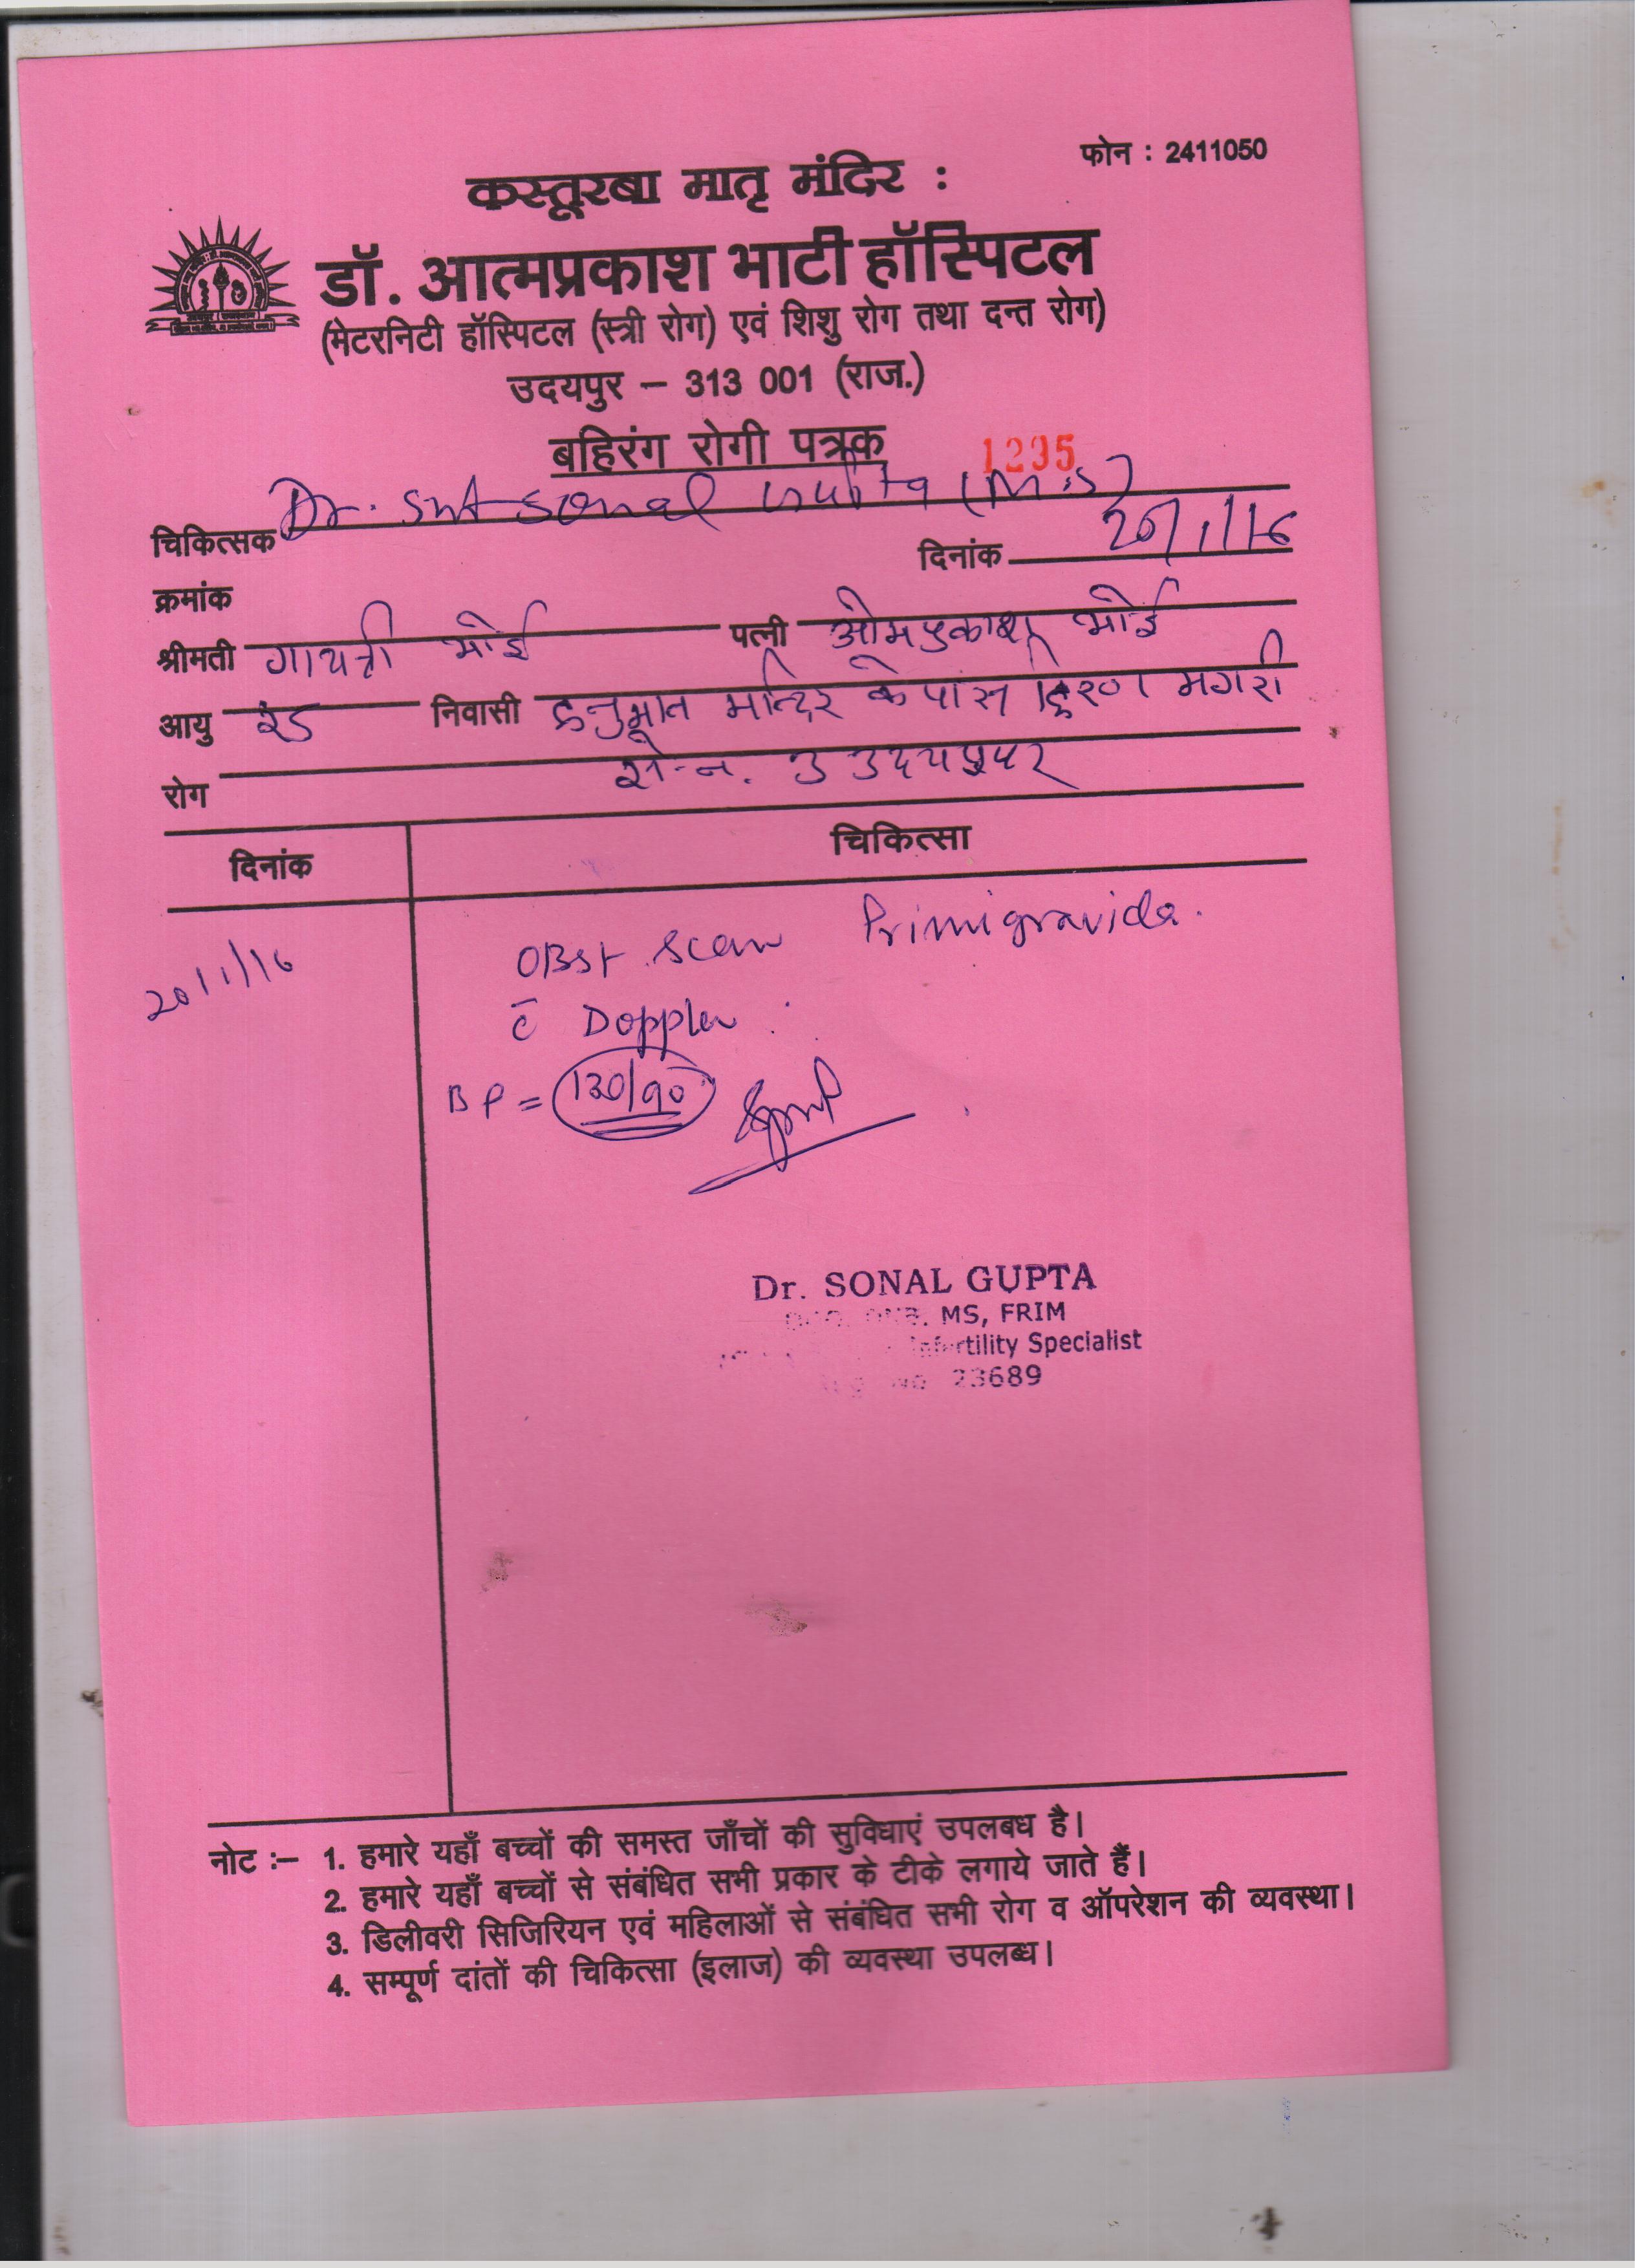 फोन : 2411050
कस्तूरबा मातृ मंदिर :
डॉ. आत्मप्रकाश भाटी हॉस्पिटल
(मेटरनिटी हॉस्पिटल (स्त्री रोग) एवं शिशु रोग तथा दन्त रोग)
उदयपुर – 313 001 (राज.)
बहिरंग रोगी पत्रक 1295
चिकित्सक Dr. Smt Sonal Gupta (M.S)
दिनांक 20/1/16
क्रमांक
श्रीमती गायत्री भोई पत्नी ओमप्रकाश भोई
आयु 25 निवासी हनुमान मन्दिर के पास हिरण मगरी
से.न. 3 उदयपुर
रोग
दिनांक चिकित्सा
20/1/16 OBst scan Primigravida.
c̄ Doppler
BP = 130/90
Dr. SONAL GUPTA
MS, FRIM
Infertility Specialist
No 23689
नोट :– 1. हमारे यहाँ बच्चों की समस्त जाँचों की सुविधाएं उपलबध है।
2. हमारे यहाँ बच्चों से संबंधित सभी प्रकार के टीके लगाये जाते हैं।
3. डिलीवरी सिजिरियन एवं महिलाओं से संबंधित सभी रोग व ऑपरेशन की व्यवस्था।
4. सम्पूर्ण दांतों की चिकित्सा (इलाज) की व्यवस्था उपलब्ध।